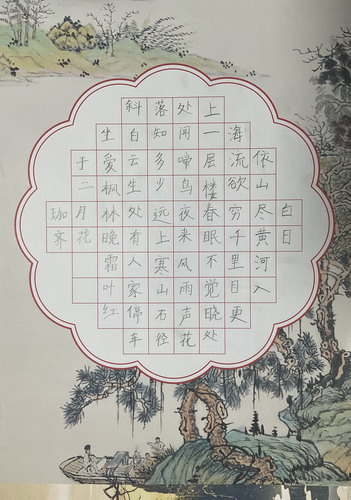 白日
依山尽黄河入
海流欲穷千里目更
上一层楼春眠不觉晓处
处闻啼鸟夜来风雨声花
落知多少远上寒山石径
斜白云生处有人家停车
坐爱枫林晚霜叶红
于二月花